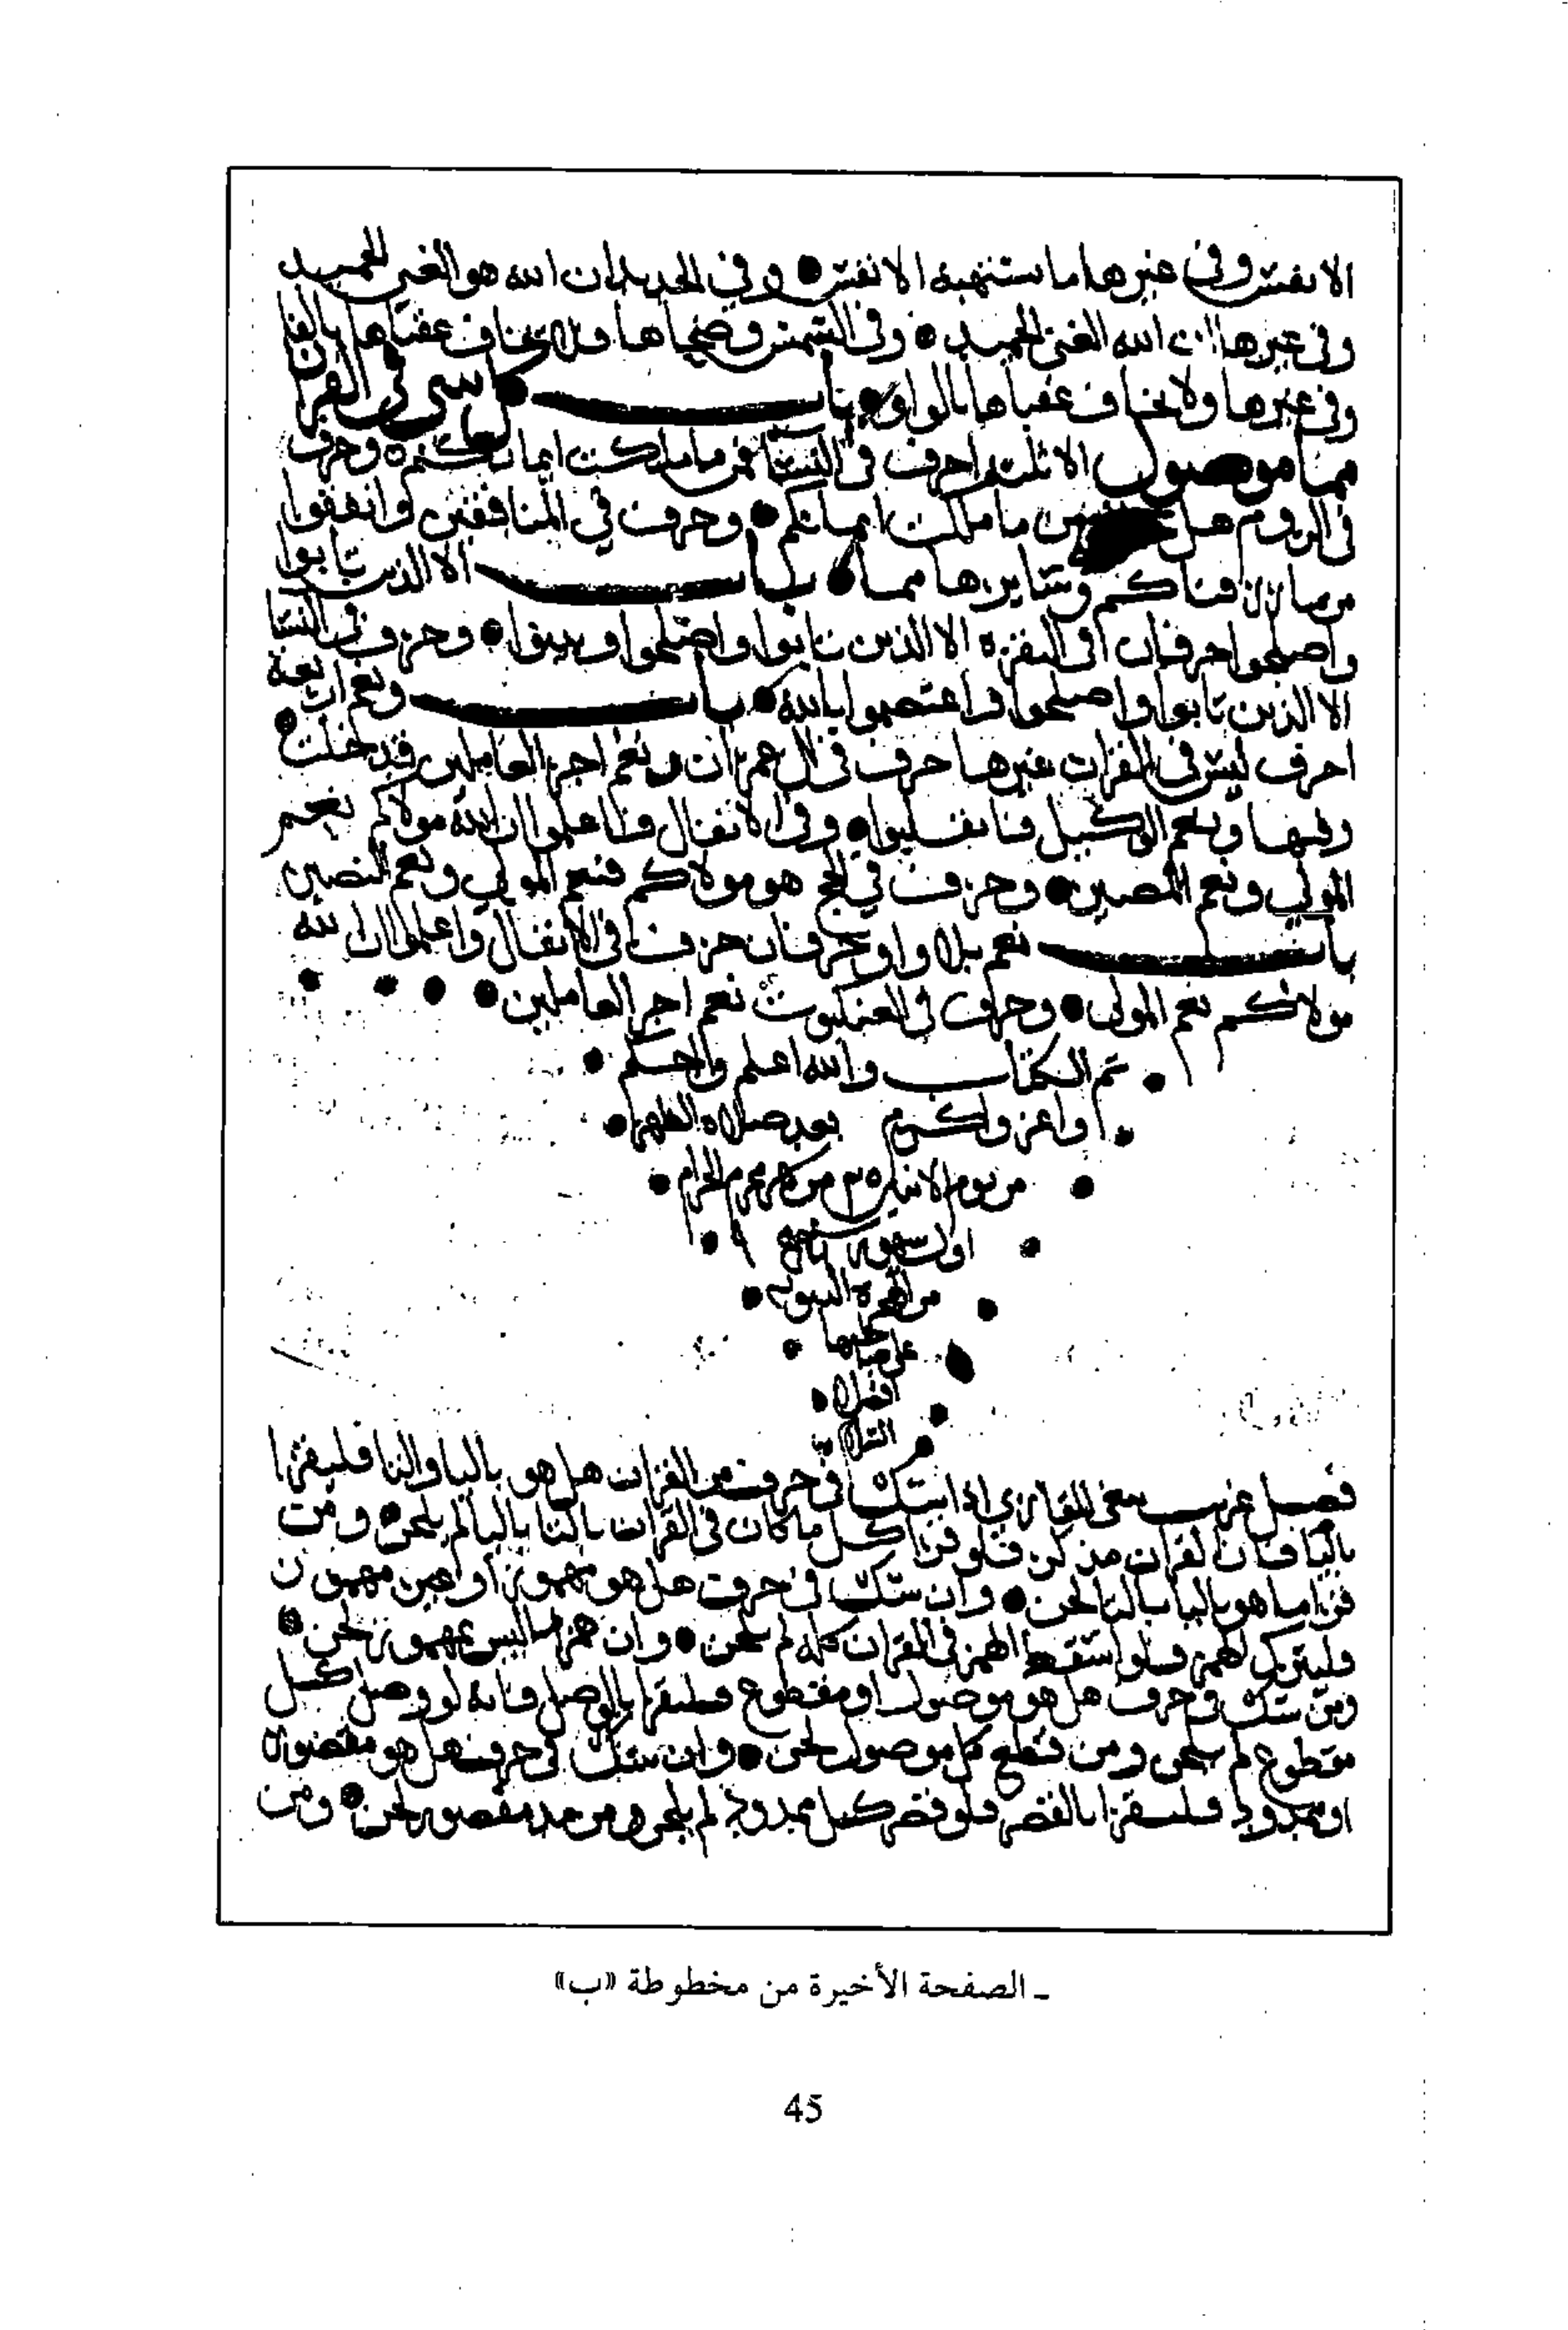 الانفس وفي غيرها ما تشتهيه الانفس • وفي الحديد ان الله هو الغني الحميد
وفي غيرها ان الله الغني الحميد • وفي الشمس وضحاها فلا يخاف عقباها بالفا
وفي غيرها ولا يخاف عقباها بالواو • باب كل شي في القران
مما موصول الا ثلثه احرف في النسا فمن ما ملكت ايمانكم • وحرف
في الروم هل من ما ملكت ايمانكم • وحرف في المنافقين وانفقوا
من ما رزقناكم وسايرها مما • باب الا الذين تابوا
واصلحوا حرفان في البقره الا الذين تابوا واصلحوا وبينوا • وحرف في النسا
الا الذين تابوا واصلحوا واعتصموا بالله • باب ونعم اربعة
احرف ليس في القران غيرها حرف في ال عمران ونعم اجر العاملين قد خلت •
وفيها ونعم الوكيل فانقلبوا • وفي الانفال فاعلموا ان الله مولاكم نعم
المولى ونعم النصير • وحرف في الحج هو مولاكم فنعم المولى ونعم النصير
باب نعم بلا واو حرفان حرف في الانفال واعلموا ان الله
مولاكم نعم المولى • وحرف في العنكبوت نعم اجر العاملين • • • •
• تم الكتاب والله اعلم واحكم •
• واعز واكرم بعد صلاة الظهر •
• من يوم الاثنين من محرم الحرام •
• اول •
• من الهجرة النبوية •
• على صاحبها •
• افضل •
•
فصل غريب معنى القاري اذا شك في حرف من القران هل هو باليا والتا فليقرا
باليا فان القران مذكر فلو قرا كل ما كان في القران بالتا باليا لم يلحن • ومن
قرا ما هو باليا بالتا لحن • وان شك في حرف هل هو مهموز او غير مهموز
فليترك الهمز فلو اسقط الهمز في القران كله لم يلحن • وان همز ما ليس بمهموز لحن •
ومن شك في حرف هل هو موصول او مقطوع فليقرا بالوصل فانه لو وصل كل
مقطوع لم يلحن ومن قطع كل موصول لحن • وان شك في حرف هل هو مقصور
او ممدود فليقرا بالقصر فلو قصر كل ممدود لم يلحن ومن مد مقصور لحن • ومن
ـ الصفحة الأخيرة من مخطوطة «ب»
45